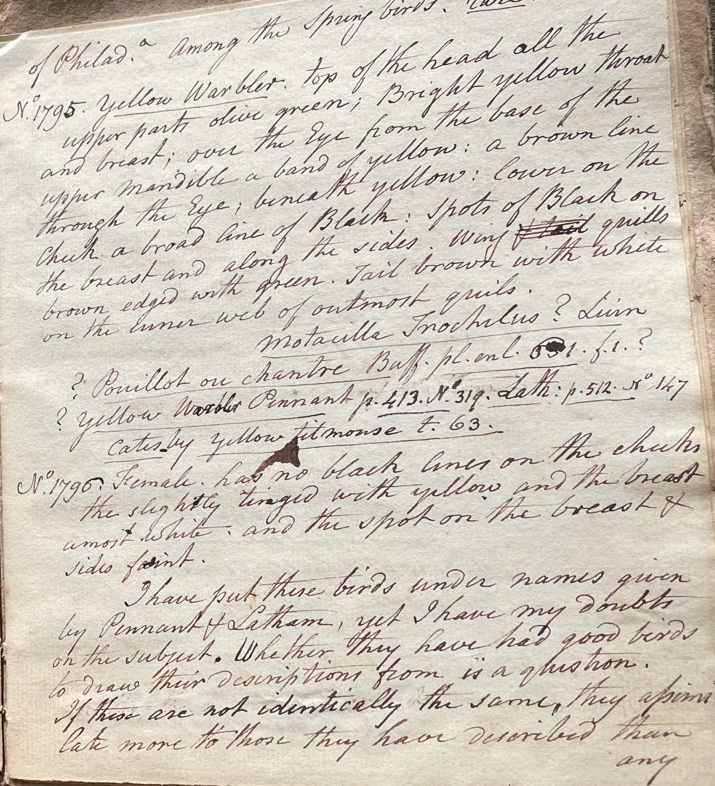 of Philad.a Among the Spring birds. rare.
No. 1795. Yellow Warbler. top of the head all the
upper parts olive green; Bright yellow throat
and breast; over the Eye from the base of the
upper mandible a band of yellow: a brown line
through the Eye; beneath yellow: lower on the
Cheek a broad line of Black: Spots of Black on
the breast and along the sides. Wing quills
brown edged with green. Tail brown with white
on the inner web of outmost quils.
Motacilla Trochilus? Linn
? Pouillot ou chantre Buff. pl. enl. 651. f.1.?
? Yellow Warbler Pennant p. 413. No 319. Lath: p. 512. No 147
Catesby yellow titmouse t. 63.
No. 1796. Female. has no black lines on the cheeks
the slightly tinged with yellow and the breast
amost white. and the spot on the breast &
sides faint.
I have put these birds under names given
by Pennant & Latham, yet I have my doubts
on the subject. Whether they have had good birds
to draw their descriptions from is a question.
If these are not identically the same, they assimi
late more to those they have described than
any